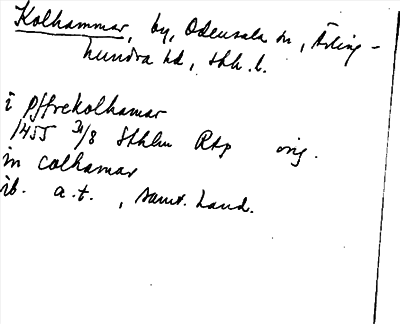 Kolhammar, by, Odensala sn, Ärling-
hundra hd, Sthlm. l.
i pffrekolhamar
1455 30/8 Sthlm Rap orig.
in colhamar
ib. a.t., samt. hand.